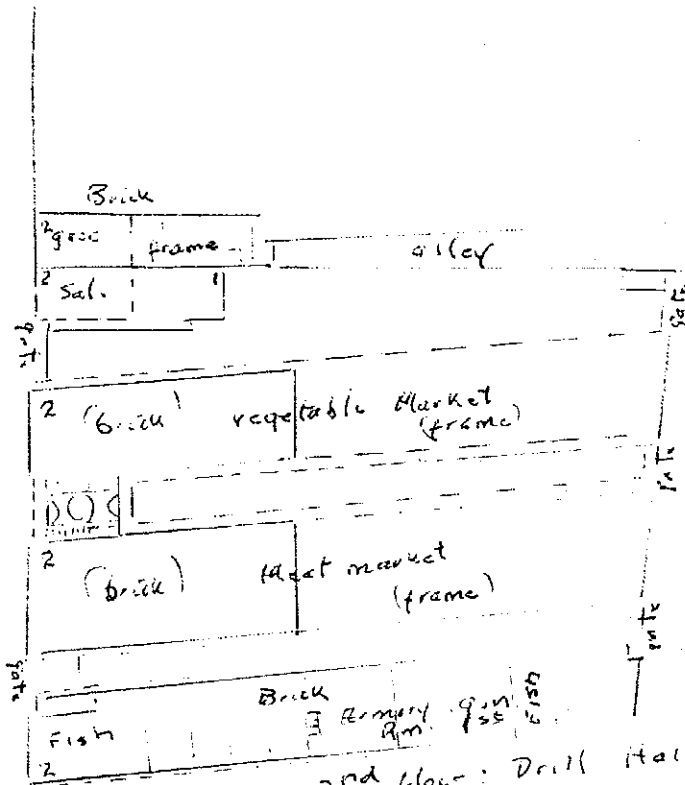 Brick
2 groc frame
alley
2 Sal. 1
gate
gate
2 (brick) vegetable Market
(frame)
2
(brick) Meat market
(frame)
gate
Brick
Fish Armory
Rm.
Fish
2
2nd floor: Drill Hal